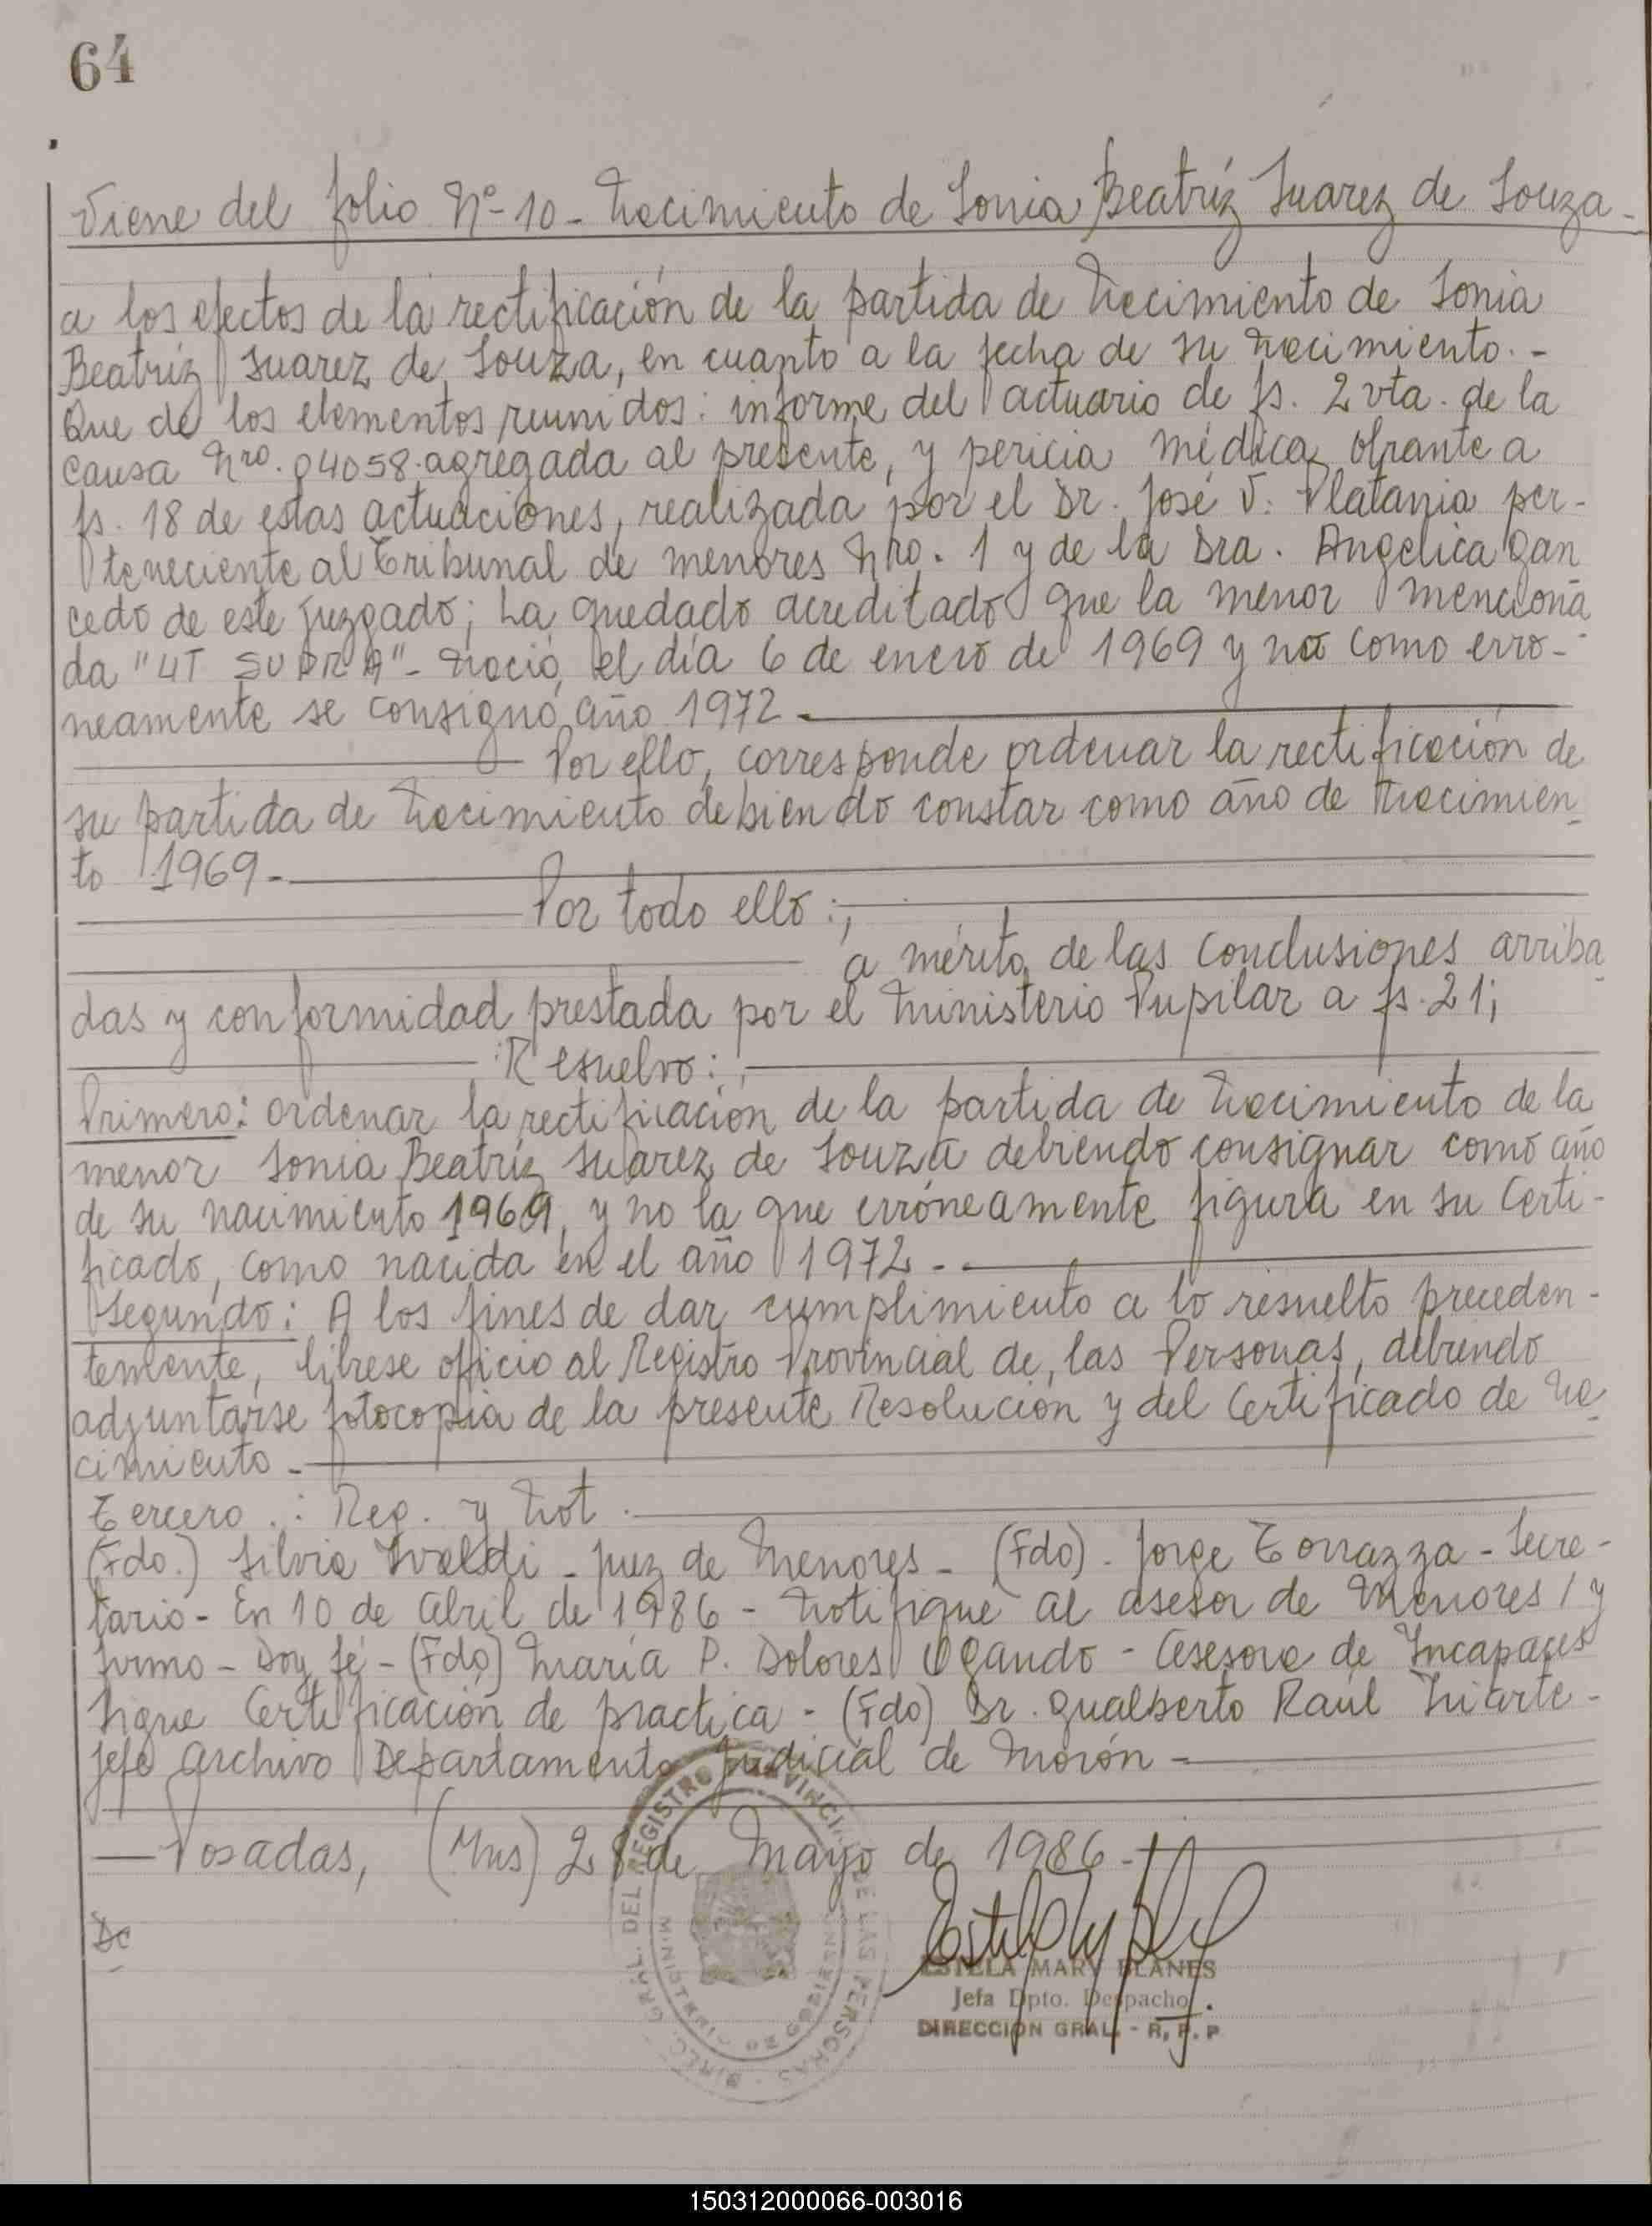 64
Viene del folio Nº-10- Nacimiento de Sonia Beatríz Suarez de Souza-
a los efectos de la rectificación de la partida de Nacimiento de Sonia
Beatríz Suarez de Souza, en cuanto a la fecha de su Nacimiento.-
Que de los elementos reunidos: informe del actuario de fs. 2 vta. de la
causa Nro. 04058. agregada al presente, y pericia médica obrante a
fs. 18 de estas actuaciones, realizada por el Dr. José V. Platania per-
teneciente al Tribunal de menores Nro. 1 y de la Dra. Angelica Gan
cedo de este juzgado; ha quedado acreditado que la menor menciona
da "UT SUPRA"- Nació, el día 6 de enero de 1969 y no como erro-
neamente se consignó año 1972.-
Por ello, corresponde ordenar la rectificación de
su partida de Nacimiento debiendo constar como año de Nacimien_
to 1969.-
Por todo ello:,
a mérito de las conclusiones arriba_
das y conformidad prestada por el Ministerio Pupilar a fs. 21;
:Resuelvo:,
Primero: ordenar la rectificación de la partida de Nacimiento de la
menor Sonia Beatríz Suarez de Souza debiendo consignar como año
de su nacimiento 1969, y no la que erróneamente figura en su Certi-
ficado, como nacida en el año 1972.-
Segundo: A los fines de dar cumplimiento a lo resuelto preceden-
temente, líbrese oficio al Registro Provincial de, las Personas, debiendo
adjuntarse fotocopia de la presente Resolución y del Certificado de Na_
cimiento.-
Tercero.: Reg. y Not.
(Fdo.) Silvia Ivaldi - juez de Menores - (Fdo). Jorge Torrazza - Secre-
tario - En 10 de abril de 1986 - Notifiqué al asesor de Menores / y
firmo - Doy fé - (Fdo) María P. Dolores Ogando - Asesora de Incapaces
Sigue Certificación de practica - (Fdo) Dr. Gualberto Raúl Iriarte -
Jefe Archivo Departamento Judicial de Morón -
Posadas, (Mns) 28 de Mayo de 1986.-
Dc
DIREC. GRAL. DEL REGISTRO PROVINCIAL DE LAS PERSONAS
MINISTERIO DE GOBIERNO
ESTELA MARY BLANES
Jefa Dpto. Despacho
DIRECCION GRAL. - R. P. P
150312000066-003016